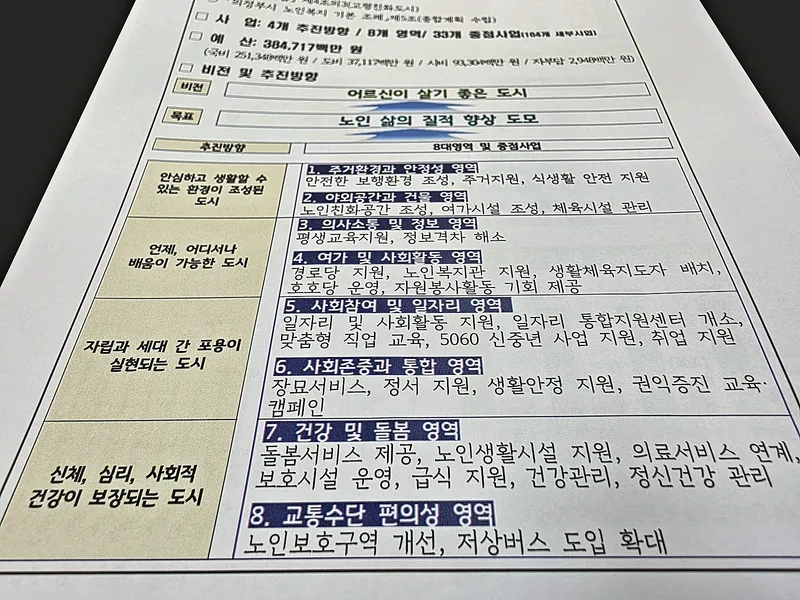 의정부시 노인복지 기본 조례 제5조(종합계획 수립)
□ 사 업: 4개 추진방향 / 8개 영역/ 33개 중점사업(164개 세부사업)
□ 예 산: 384,717백만 원
(국비 251,348백만 원 / 도비 37,117백만 원 / 시비 93,304백만 원 / 자부담 2,948백만 원)
□ 비전 및 추진방향
비전 어르신이 살기 좋은 도시
목표 노인 삶의 질적 향상 도모
추진방향 8대영역 및 중점사업
안심하고 생활할 수
있는 환경이 조성된
도시
1. 주거환경과 안정성 영역
안전한 보행환경 조성, 주거지원, 식생활 안전 지원
2. 야외공간과 건물 영역
노인친화공간 조성, 여가시설 조성, 체육시설 관리
언제, 어디서나
배움이 가능한 도시
3. 의사소통 및 정보 영역
평생교육지원, 정보격차 해소
4. 여가 및 사회활동 영역
경로당 지원, 노인복지관 지원, 생활체육지도자 배치,
호호당 운영, 자원봉사활동 기회 제공
자립과 세대 간 포용이
실현되는 도시
5. 사회참여 및 일자리 영역
일자리 및 사회활동 지원, 일자리 통합지원센터 개소,
맞춤형 직업 교육, 5060 신중년 사업 지원, 취업 지원
6. 사회존중과 통합 영역
장묘서비스, 정서 지원, 생활안정 지원, 권익증진 교육·
캠페인
신체, 심리, 사회적
건강이 보장되는 도시
7. 건강 및 돌봄 영역
돌봄서비스 제공, 노인생활시설 지원, 의료서비스 연계,
보호시설 운영, 급식 지원, 건강관리, 정신건강 관리
8. 교통수단 편의성 영역
노인보호구역 개선, 저상버스 도입 확대